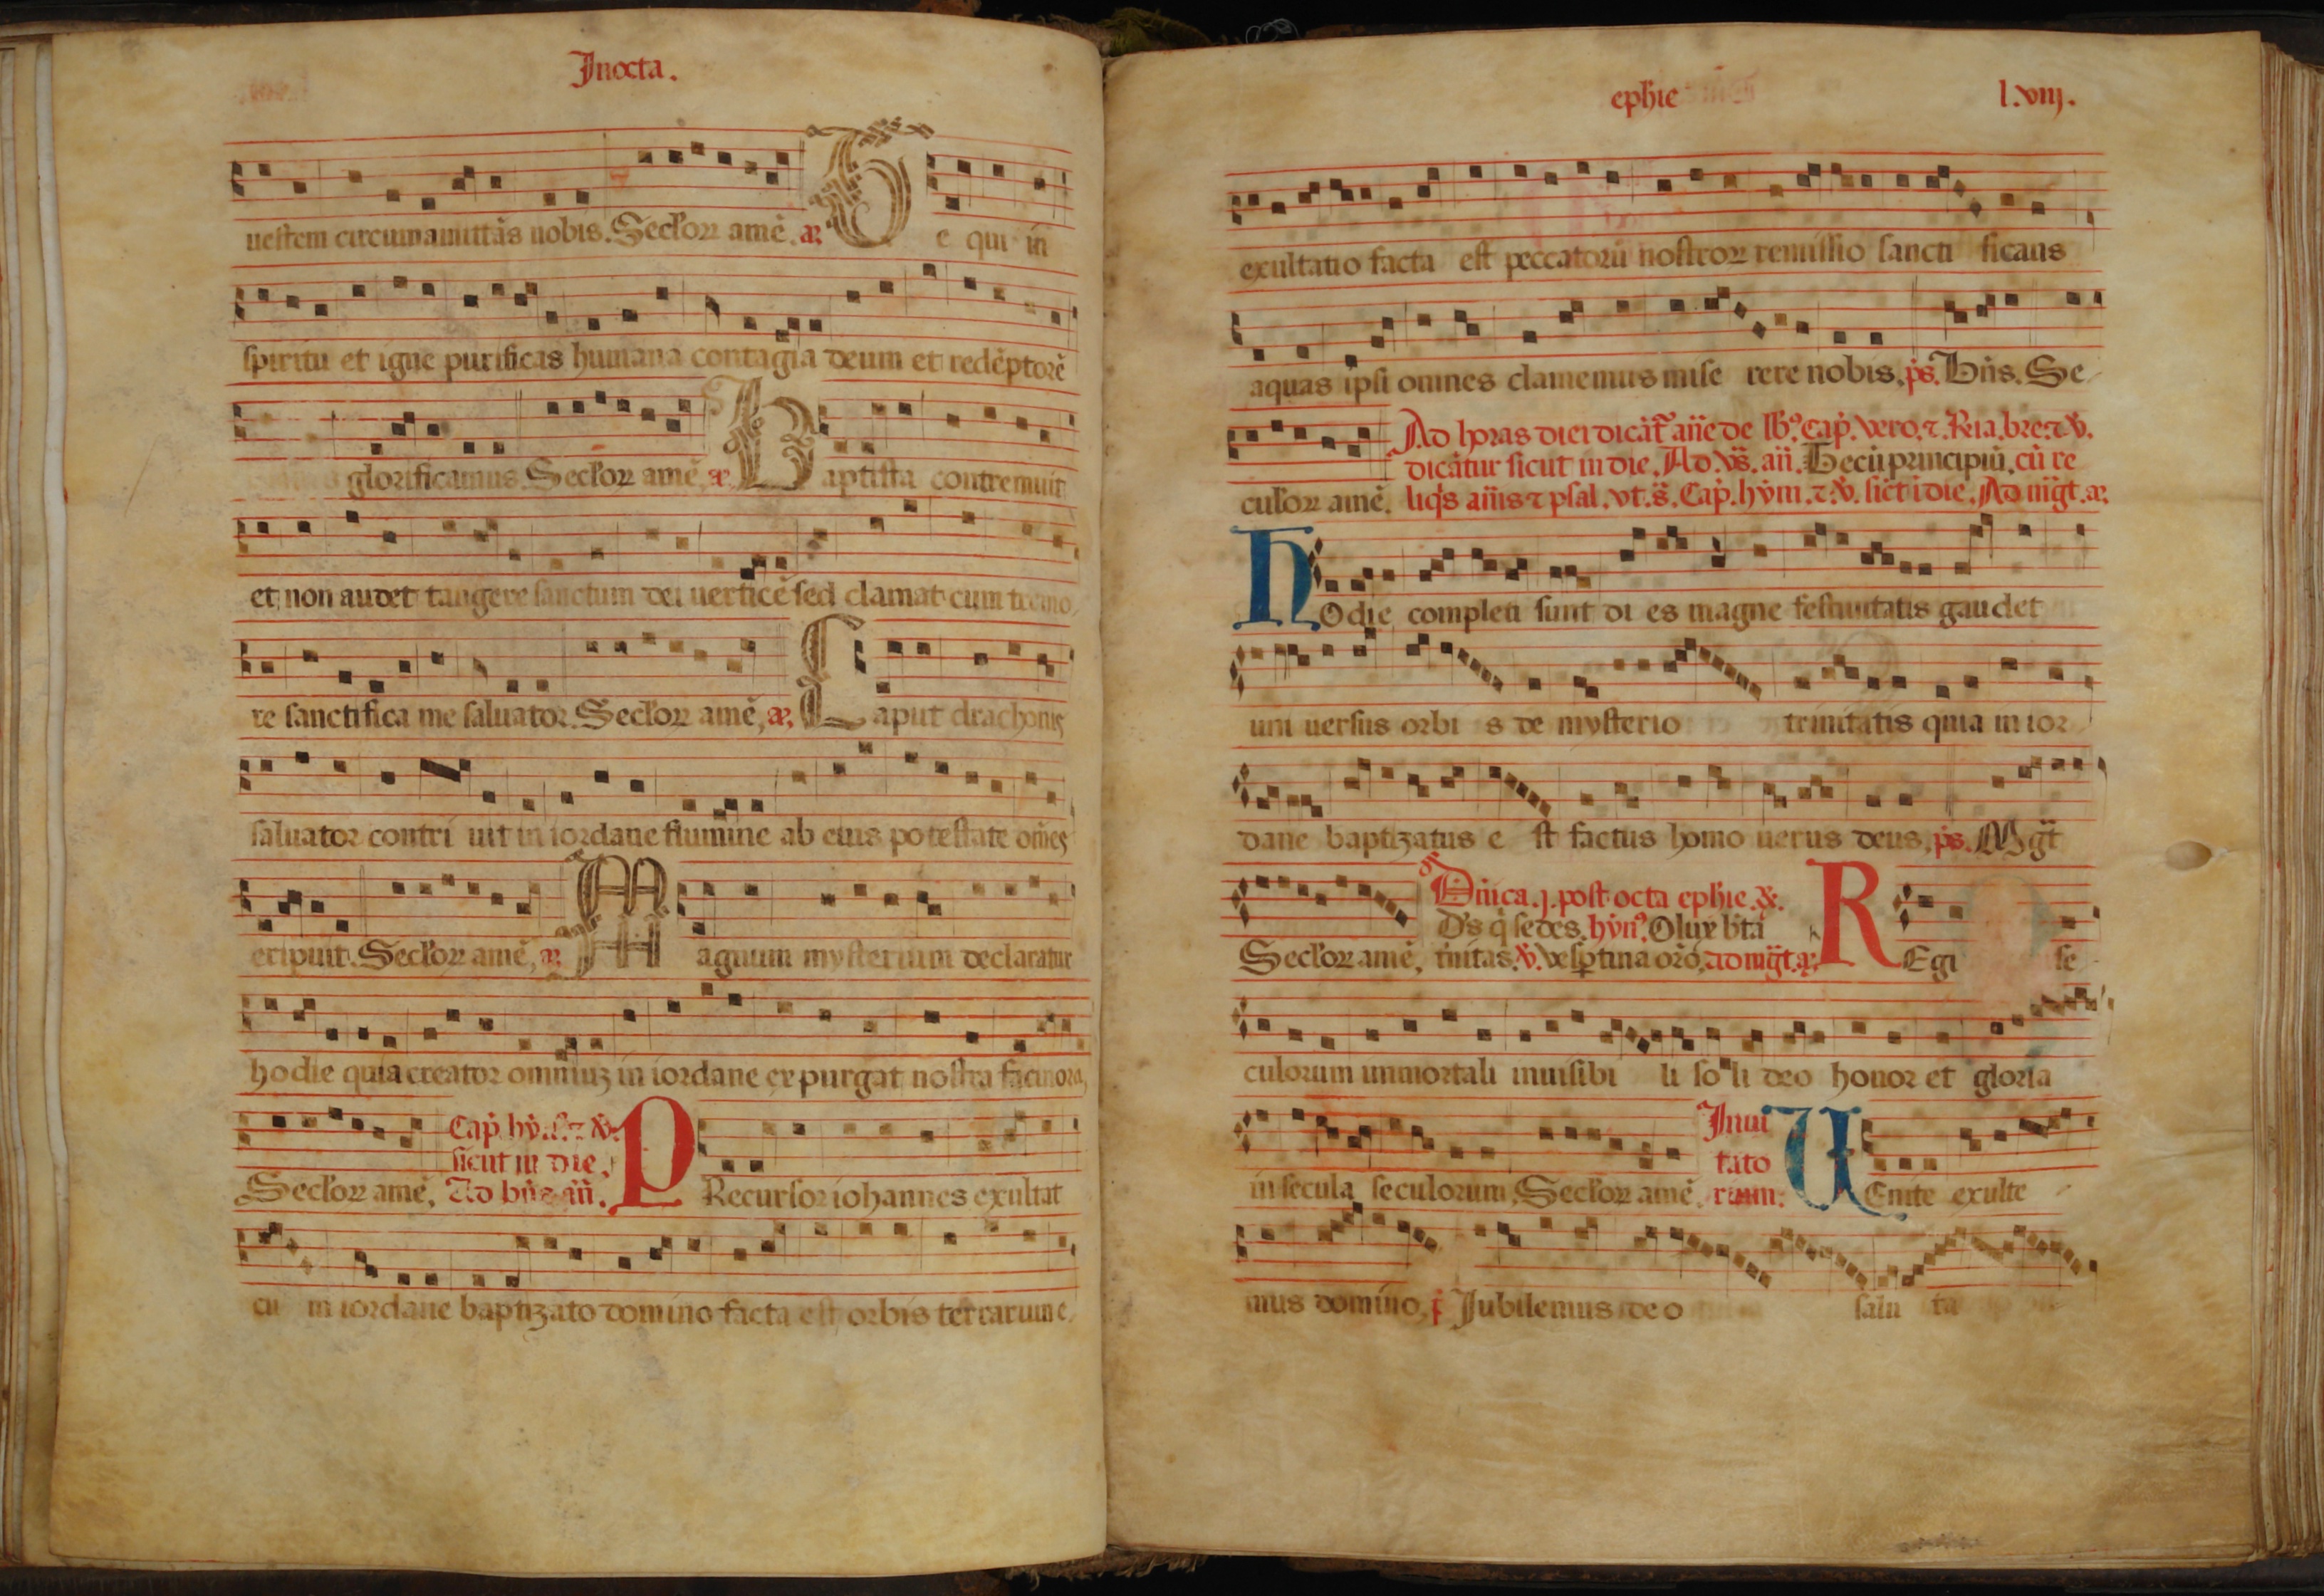 Jnocta.
uestem circumamittās nobis. Sec̄loꝝ amē. añ T e qui in
spiritu et igne purificas humana contagia deum et redēptorē
glorificamus. Sec̄loꝝ amē. añ B aptista contremuit
et non audet tangere sanctum dei uerticē sed clamat cum tremo
re sanctifica me saluator. Sec̄loꝝ amē. añ C aput drachonis
saluator contri uit in iordane flumine ab eius potestate om̄es
eripuit. Sec̄loꝝ amē. añ M agnum mysterium declaratur
hodie quia creator omniuꝫ in iordane expurgat nostra facinora,
Cap̄. hȳ
sicut in die.
Sec̄loꝝ amē. Ad bn̄s añ. P Recursor iohannes exultat
cu m iordane baptizato domino facta est orbis terrarum e
ephie l.viij.
exultatio facta est peccatorū nostroꝝ remissio sancti ficans
aquas ipsi omnes clamemus mise rere nobis. ps̄. Bn̄s. Se
Ad horas diei dicāt᷑ añe de lb̓ꝰ. Cap̄. vero. ⁊. Ria. bre. ⁊ ℣.
dicātur sicut in die. Ad. vs̄. añ. Tecū principiū. cū re
culoꝝ amē. liq̄s añis ⁊ psal. vt. s̄. Cap̄. hȳm. ⁊ ℣. sict̄ ī die. Ad mḡt. añ.
H Odie completi sunt di es magne festiuitatis gaudet
uni uersus orbi s de mysterio trinitatis quia in ior
dane baptizatus e st factus homo uerus deus. ps̄. Mḡt
Dn̄ica. j. post octa ephie. ℟.
Ds̄ q̄ sedes. hȳnꝰ. O lux bt̄a
Sec̄loꝝ amē. t̄nitas. ℣. vesp̄tina orō. ad mḡt. añ. R Egi se
culorum immortali inuisibi li so li deo honor et gloria
Inui
tato
in secula seculorum. Sec̄loꝝ amē. rium. V Enite exulte
mus domino. p̄ Jubilemus deo salu ta